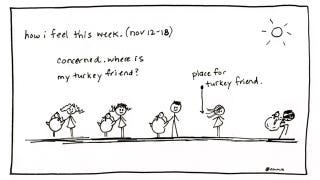 how i feel this week. (nov 12-18)
concerned. where is
my turkey friend?
place for
turkey friend.